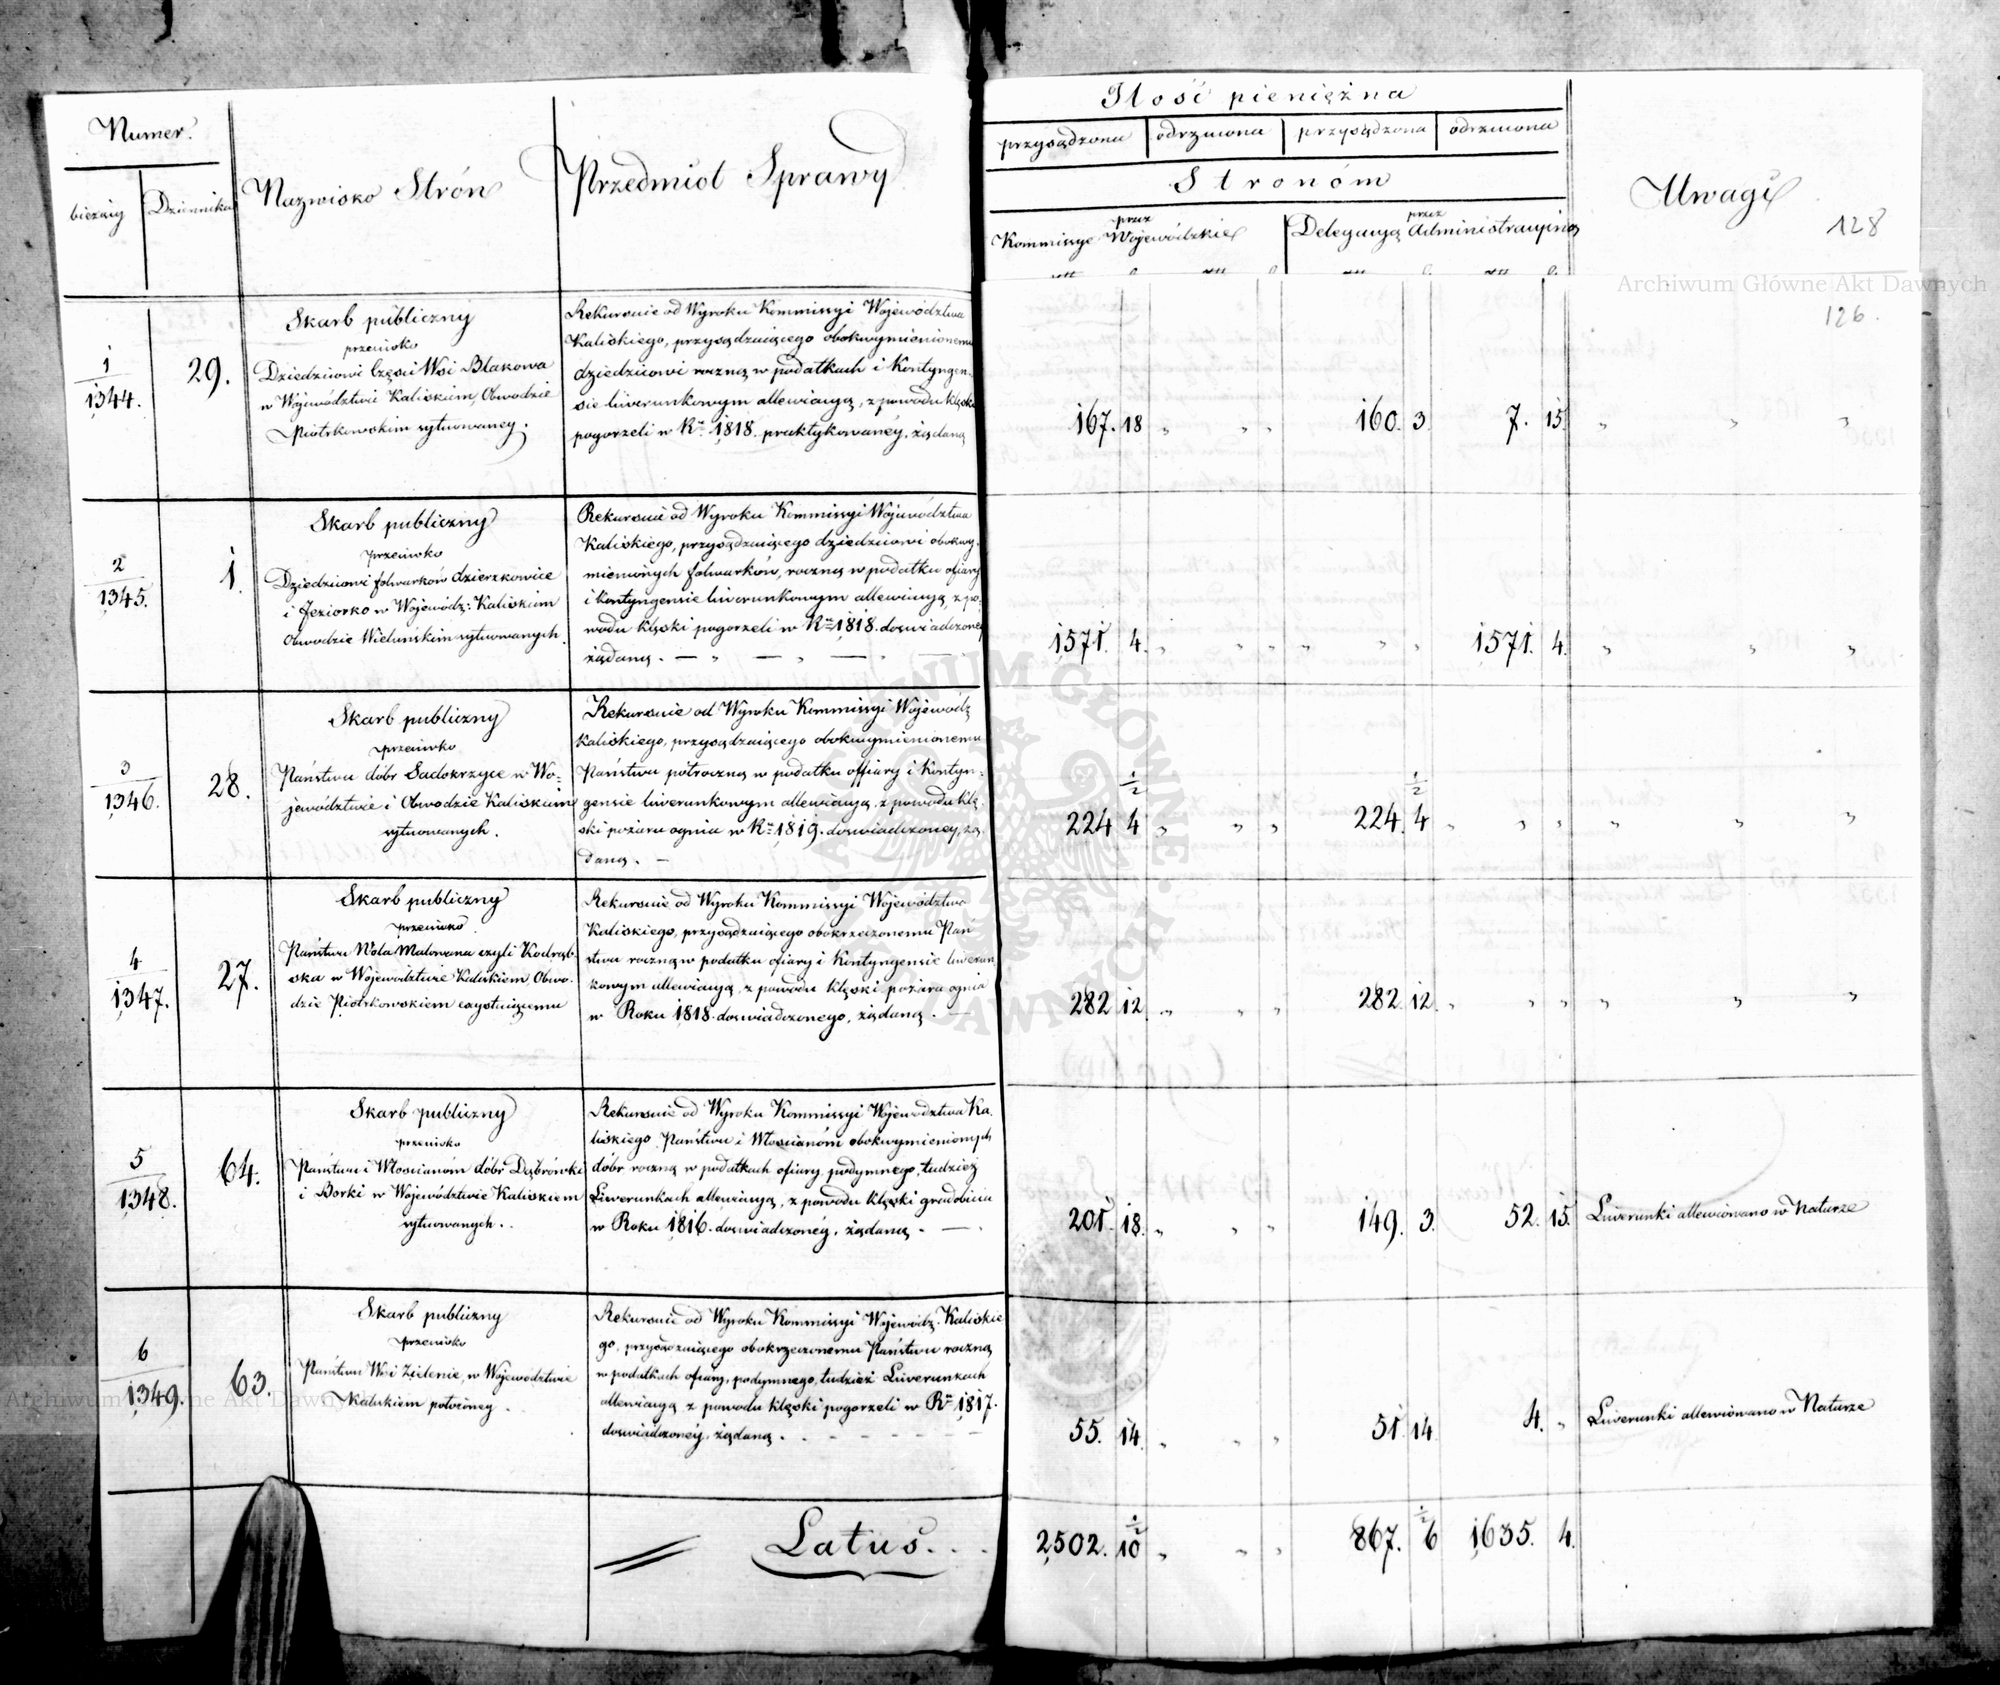 Numer.
bieżący
Dziennika
Nazwisko Strón
Przedmiot Sprawy
Ilość pieniężna
przysądzona
odrzucona
przysądzona
odrzucona
Stronóm
przez
Kommissye Wojewódzkie
przez
Delegacyą Administracyiną
Uwagi
128
Archiwum Główne Akt Dawnych
126.
1
1344.
29.
Skarb publiczny
przeciwko
Dziedzicowi Części Wsi Blakowa
w Województwie Kaliskiem, Obwodzie
Piotrkowskim sytuowaney.
Rekursuie od Wyroku Kommissyi Województwa
Kaliskiego, przysądzaiącego obokwymienionemu
dziedzicowi roczną w podatkach i Kontyngen-
sie liwerunkowym allewiacyą, z powodu klęski
pogorzeli w Ru 1818. praktykowanéy, żądaną
167. 18 " " " 160. 3. 7. 15. " " "
2
1345.
1.
Skarb publiczny
przeciwko
Dziedzicowi folwarków Dzierzkowice
i Jeziorko w Wojewódz: Kaliskiem
Obwodzie Wieluńskim sytuowanych.
Rekursuie od Wyroku Kommissyi Województwa
Kaliskiego, przysądzaiącego dziedzicowi obokwy-
mienionych folwarków, roczną w podatku ofiary
i kontyngensie liwerunkowym allewiacyą, z po-
wodu klęski pogorzeli w Ru 1818. doświadczoney
żądaną. — " — " — " —
1571. 4. " " " " " " 1571. 4. " " "
3
1346.
28.
Skarb publiczny
przeciwko
Państwu dóbr Sadokrzyce w Wo-
jewództwie i Obwodzie Kaliskiem
sytuowanych.
Rekursuie od Wyroku Kommissyi Wojewódz
Kaliskiego, przysądzaiącego obokwymienionemu
Państwu półroczną w podatku offiary i Kontyn-
gensie liwerunkowym allewiacyą, z powodu klę-
ski pożaru ognia w Ru 1819. doświadczoney, żą-
daną. —
224 4 1/2 " " " 224. 4 1/2 " " " " " "
4
1347.
27.
Skarb publiczny
przeciwko
Państwu Wola Malowana czyli Kodrąb-
ska w Województwie Kaliskiem, Obwo-
dzie Piotrkowskiem exystuiącemu
Rekursuie od Wyroku Kommissyi Województwa
Kaliskiego, przysądzaiącego obokrzeczonemu Pań
stwu roczną w podatku ofiary i Kontyngensie liwerun
kowym allewiacyą, z powodu klęski pożaru ognia
w Roku 1818. doświadczonego, żądaną. —
282 12. " " " 282. 12. " " " " " "
5
1348.
64.
Skarb publiczny
przeciwko
Państwu i Włościanóm dóbr Dąbrówki
i Borki w Województwie Kaliskiem
sytuowanych..
Rekursuie od Wyroku Kommissyi Województwa Ka-
liskiego Państwu i Włościanóm obokwymienionych
dóbr roczną w podatkach ofiary, podymnego, tudzież
Liwerunkach allewiacyą, z powodu klęski gradobicia
w Roku 1816. doświadczonéy, żądaną. —
201. 18. " " " 149. 3. 52. 15. Liwerunki allewiowano w Naturze
6
1349.
63.
Skarb publiczny
przeciwko
Państwu Wsi Zielenie, w Województwie
Kaliskiem położoney.
Rekursuie od Wyroku Kommissyi Wojewódz. Kaliskie
go, przysądzaiącego obokrzeczonemu Państwu roczną
w podatkach ofiary, podymnego, tudzież Liwerunkach
allewiacyą z powodu klęski pogorzeli w Ru 1817.
doświadczonéy, żądaną.
55. 14. " " " 51. 14 4. " Liwerunki allewiowano w Naturze
Archiwum Główne Akt Dawnych
Latus...
2502. 10 1/2 " " " 867. 6 1/2 1635. 4.
ARCHIWUM GŁÓWNE AKT DAWNYCH